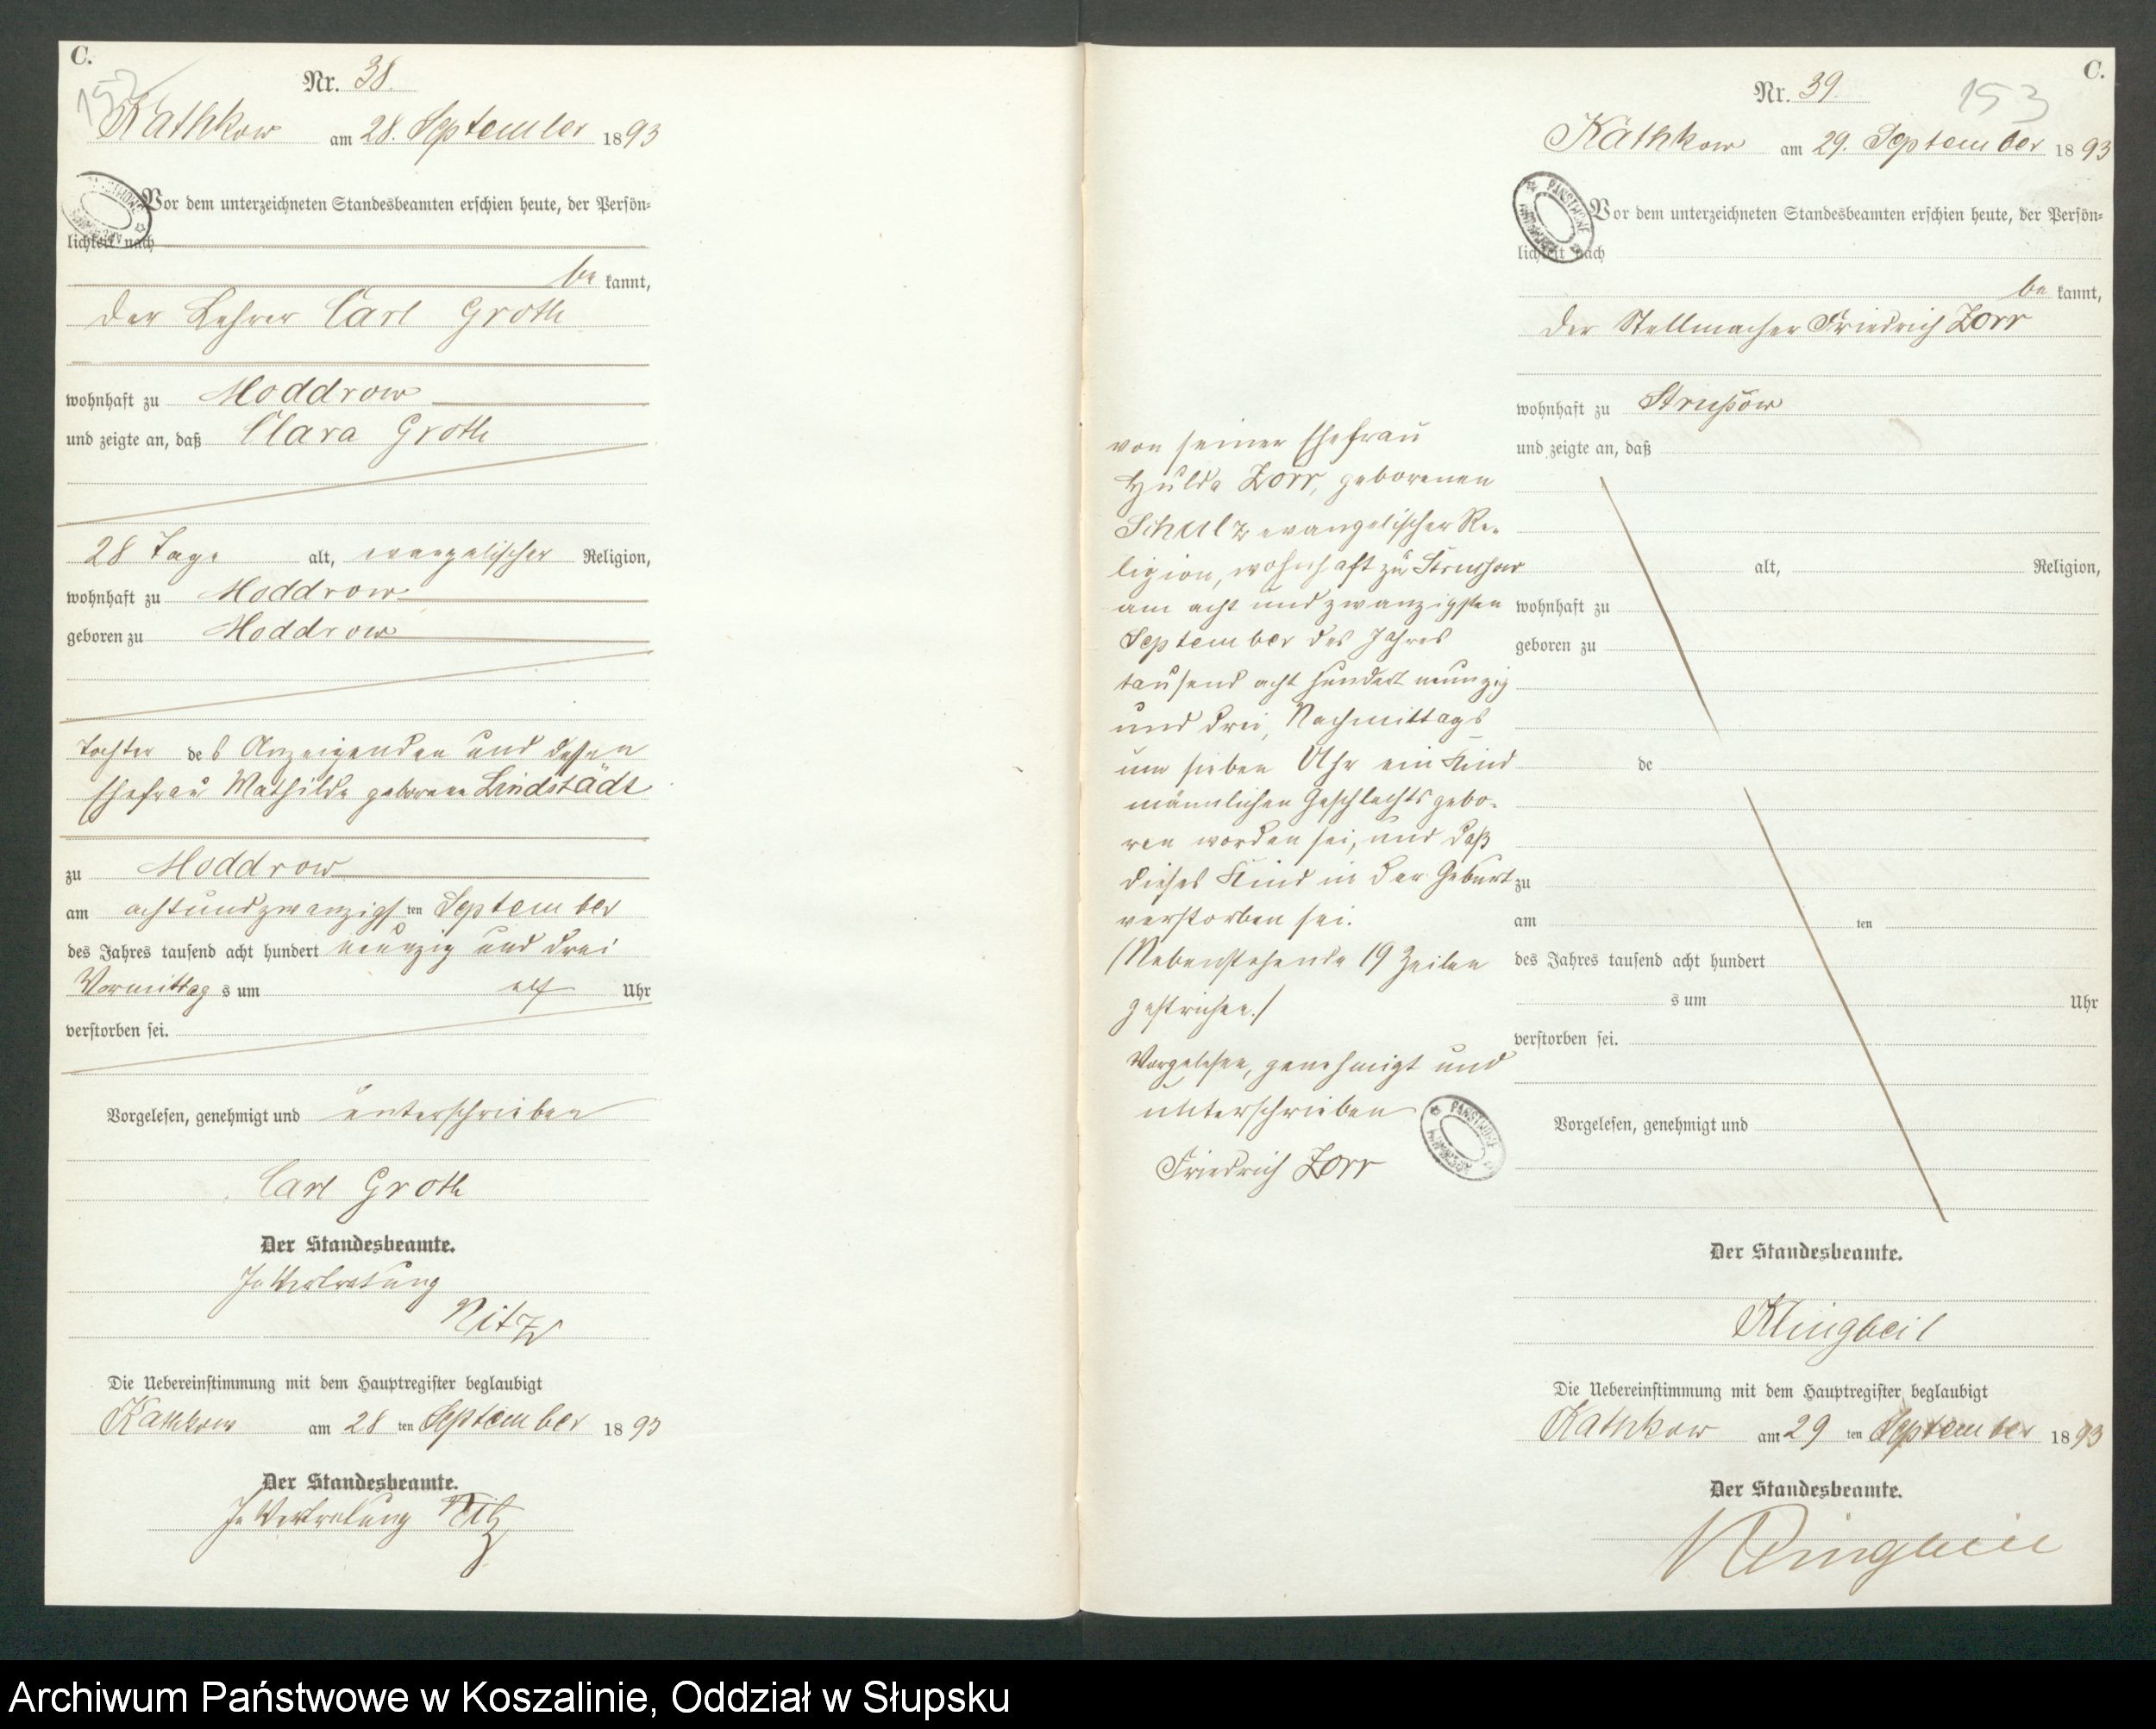 C.
152
Nr. 38.
Kathkow am 28. September 1893
Vor dem unterzeichneten Standesbeamten erschien heute, der Persön-
lichkeit nach
be kannt,
der Lehrer Carl Groth
wohnhaft zu Moddrow
und zeigte an, daß Clara Groth
28 Tage alt, evangelischer Religion,
wohnhaft zu Moddrow
geboren zu Moddrow
Tochter des Anzeigenden und dessen
Ehefrau Mathilde geborene Lindstädt
zu Moddrow
am achtundzwanzigsten September
des Jahres tausend acht hundert neunzig und drei
Vormittags um elf Uhr
verstorben sei.
Vorgelesen, genehmigt und unterschrieben
Carl Groth
Der Standesbeamte.
In Vertretung
Nitz
Die Uebereinstimmung mit dem Hauptregister beglaubigt
Kathkow am 28 ten September 1893
Der Standesbeamte.
In Vertretung Nitz
C.
153
Nr. 39.
Kathkow am 29. September 1893
Vor dem unterzeichneten Standesbeamten erschien heute, der Persön-
lichkeit nach
be kannt,
der Stellmacher Friedrich Zorr
wohnhaft zu Strußow
und zeigte an, daß
alt, Religion,
wohnhaft zu
geboren zu
de
zu
am ten
des Jahres tausend acht hundert
s um Uhr
verstorben sei.
Vorgelesen, genehmigt und
von seiner Ehefrau
Hulda Zorr, geborenen
Schulz evangelischer Re-
ligion, wohnhaft zu Strussow
am acht und zwanzigsten
September des Jahres
tausend acht hundert neunzig
und drei, Nachmittags
um sieben Uhr ein Kind
männlichen Geschlechts gebo-
ren worden sei, und daß
dieses Kind in der Geburt
verstorben sei.
/Nebenstehende 19 Zeilen
gestrichen./
Vorgelesen, genehmigt und
unterschrieben
Friedrich Zorr
Der Standesbeamte.
Klingbeil
Die Uebereinstimmung mit dem Hauptregister beglaubigt
Kathkow am 29 ten September 1893
Der Standesbeamte.
Klingbeil
Archiwum Państwowe w Koszalinie, Oddział w Słupsku